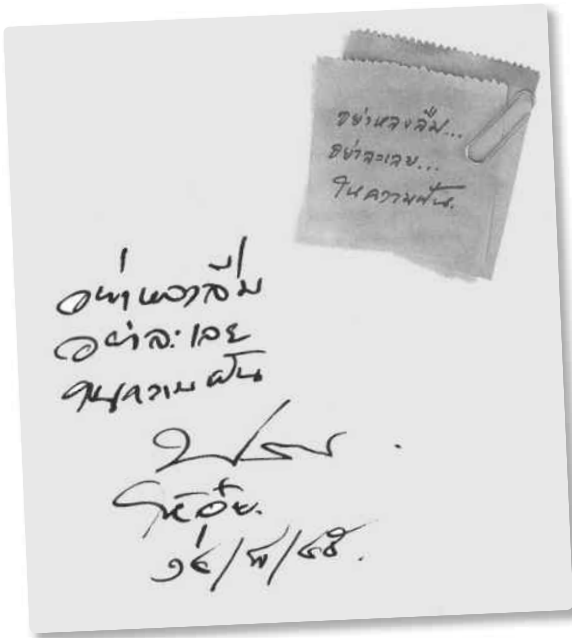 อย่าหลงลืม...
อย่าละเลย...
ในความฝัน.
อย่าหลงลืม
อย่าละเลย
ในความฝัน
ให้อุ้ย.